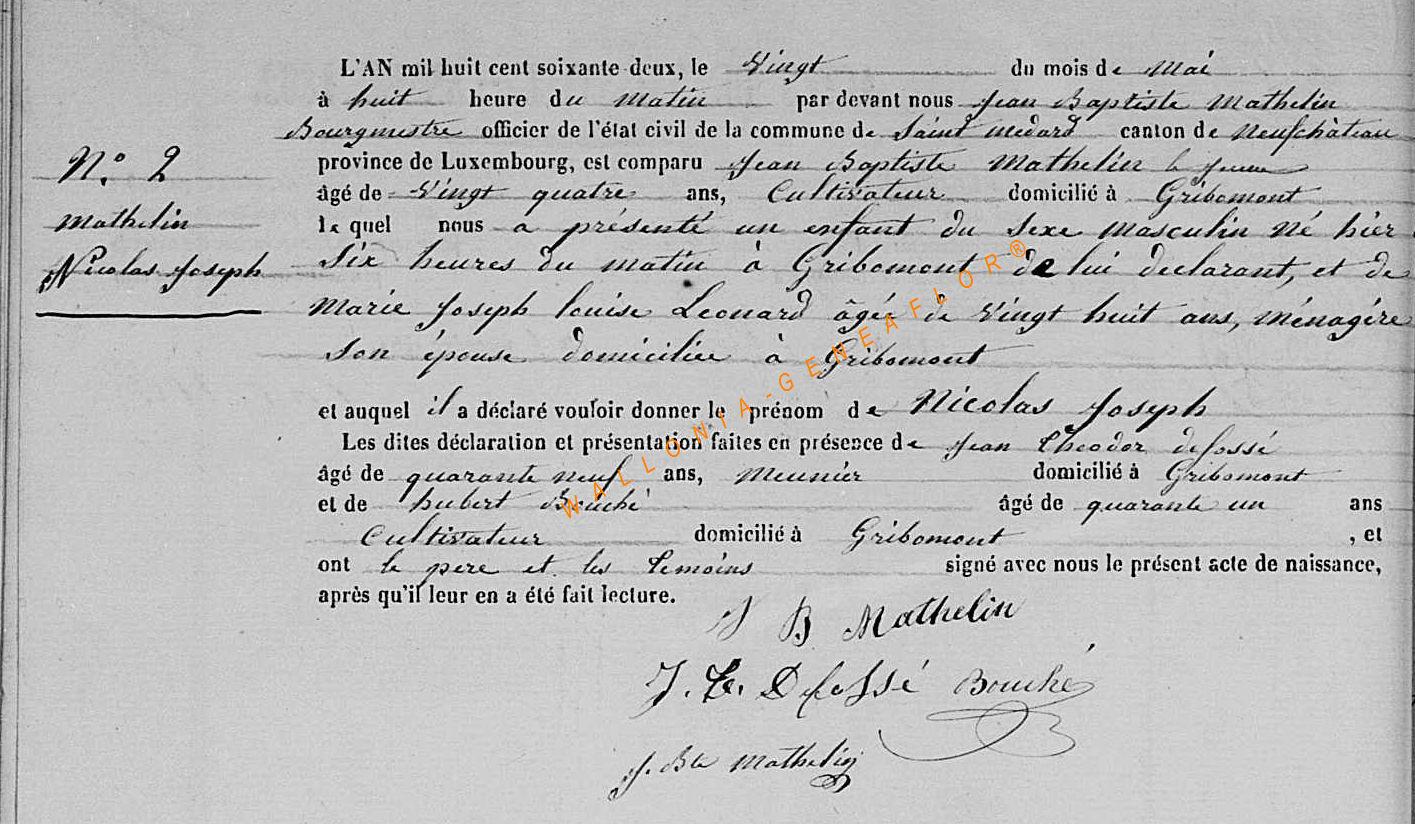 L'AN mil huit cent soixante-deux, le Vingt du mois de Mai
à huit heure du matin par devant nous Jean Baptiste Mathelin
Bourgmestre officier de l'état civil de la commune de Saint medard canton de Neufchâteau
N.° 2
province de Luxembourg, est comparu Jean Baptiste Mathelin le Jeune
âgé de Vingt quatre ans, Cultivateur domicilié à Gribomont
mathelin
le quel nous a présenté un enfant du Sexe masculin né hier
Nicolas Joseph
Six heures du matin à Gribomont de lui declarant, et de
Marie Joseph Louise Leonard âgée de Vingt huit ans, ménagère
Son épouse domiciliée à Gribomont
et auquel il a déclaré vouloir donner le prénom de Nicolas Joseph
Les dites déclaration et présentation faites en présence de Jean Theodor defossé
âgé de quarante neuf ans, Meunier domicilié à Gribomont
et de hubert Bouché âgé de quarante un ans
Cultivateur domicilié à Gribomont , et
ont le pere et les temoins signé avec nous le présent acte de naissance,
après qu'il leur en a été fait lecture.
J B Mathelin
J. T. Defossé Bouché
J. Bte Mathelin
WALLONIA-GENEAFLOR®